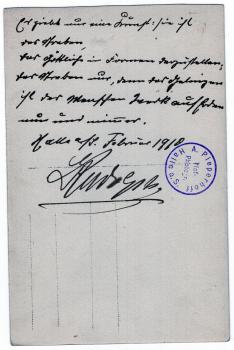 Es giebt nur eine Kunst: sie ist
das Streben,
das Göttliche in Formen darzustellen;
das Streben nur, denn das Gelingen
ist des Menschen Werk auf Erden
nun und nimmer.
Halle a/S. Februar 1910
A. Pieperhoff
Halle a. S.